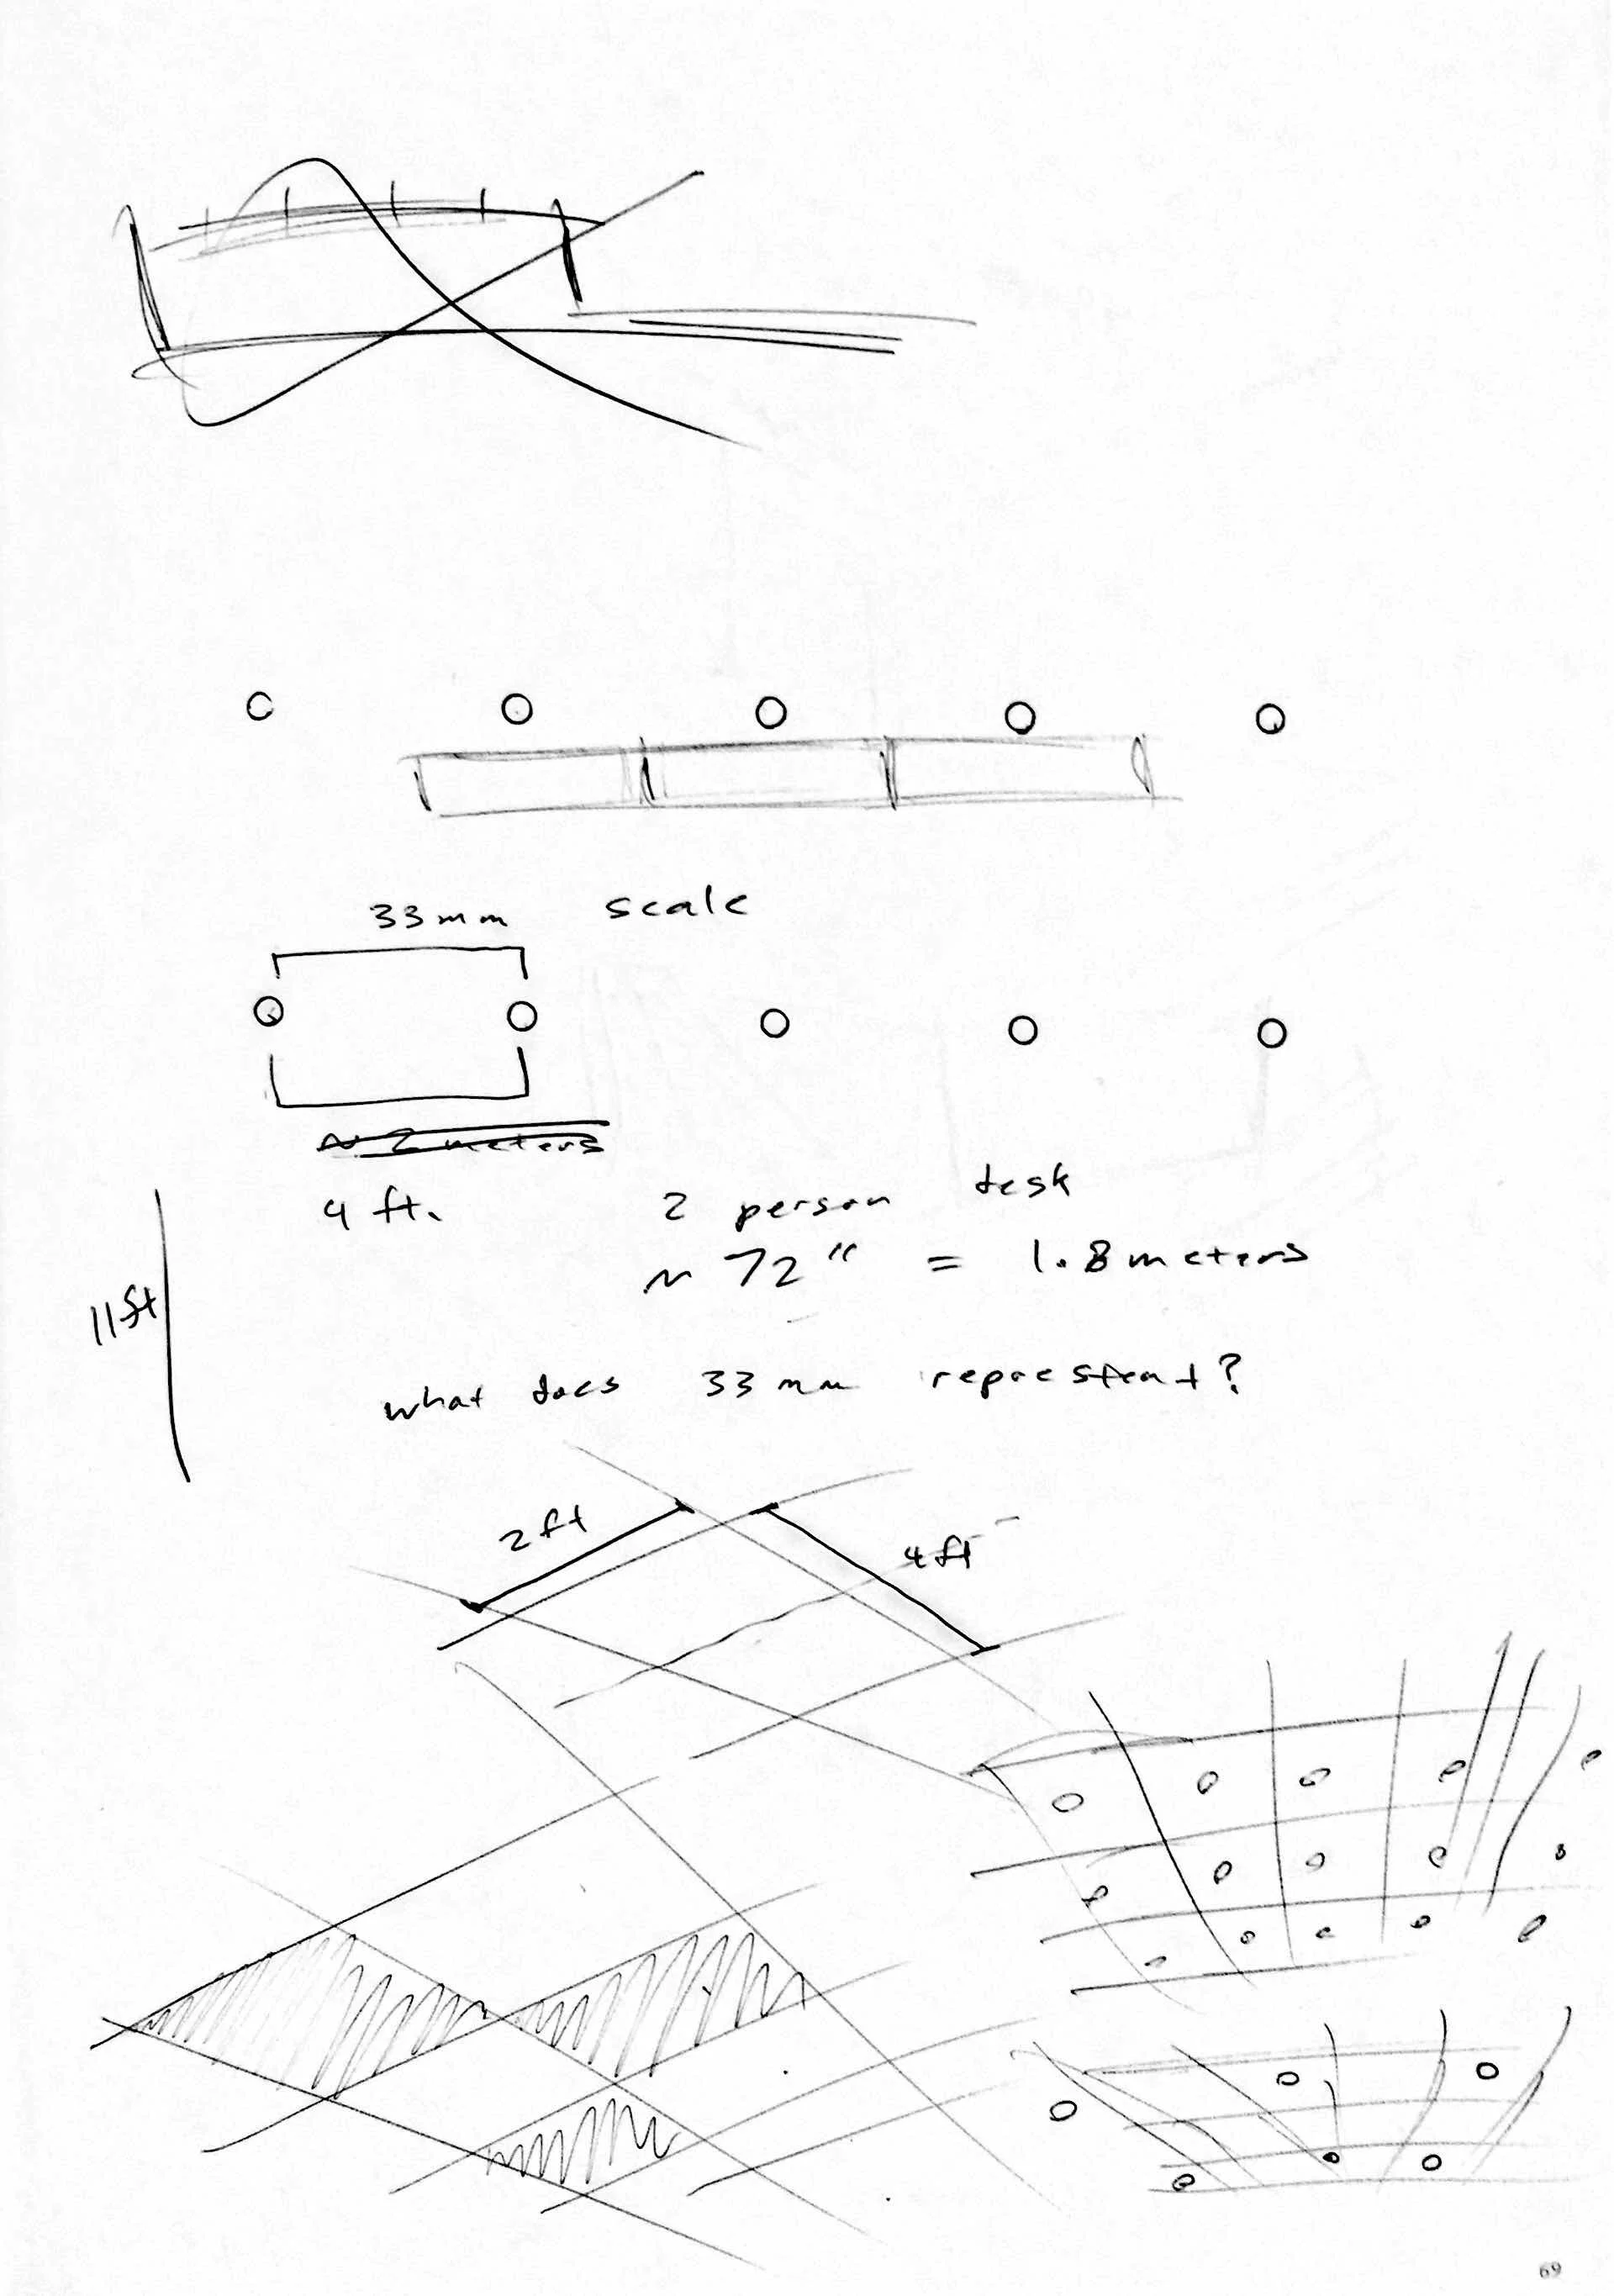 33mm scale
~ 2 meters
4 ft.
2 person desk
~ 72" = 1.8 meters
11ft
what does 33mm represtent?
2ft
4ft
69